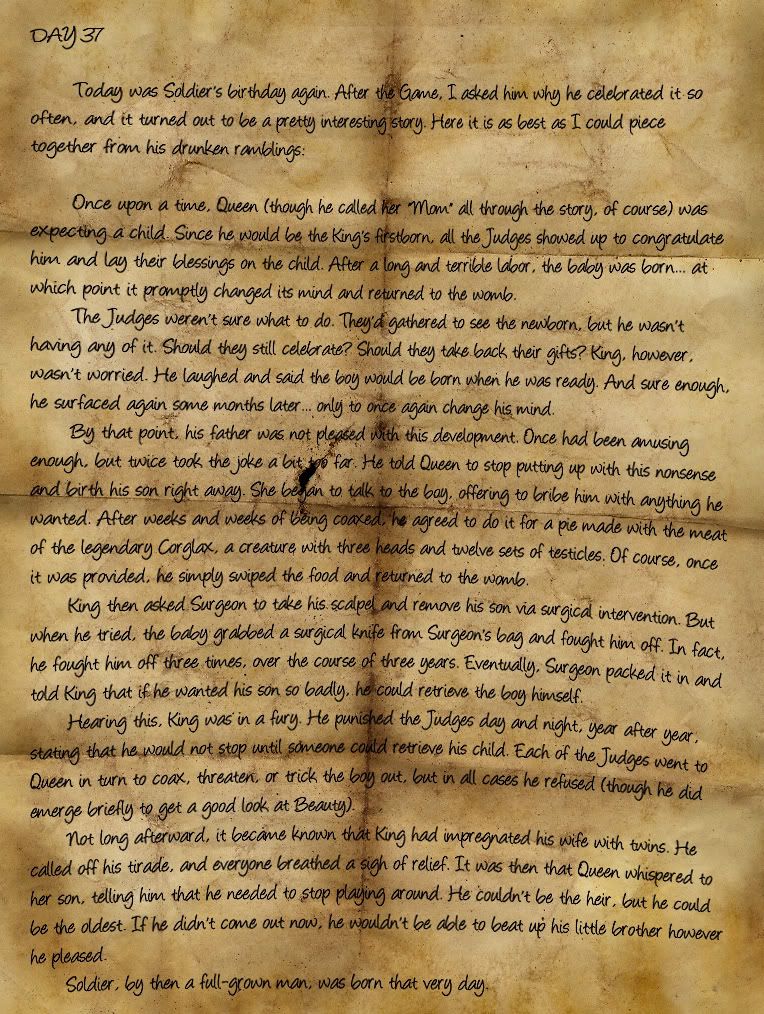 DAY 37
Today was Soldier's birthday again. After the Game, I asked him why he celebrated it so
often, and it turned out to be a pretty interesting story. Here it is as best as I could piece
together from his drunken ramblings:
Once upon a time, Queen (though he called her "Mom" all through the story, of course) was
expecting a child. Since he would be the King's firstborn, all the Judges showed up to congratulate
him and lay their blessings on the child. After a long and terrible labor, the baby was born... at
which point it promptly changed its mind and returned to the womb.
The Judges weren't sure what to do. They'd gathered to see the newborn, but he wasn't
having any of it. Should they still celebrate? Should they take back their gifts? King, however,
wasn't worried. He laughed and said the boy would be born when he was ready. And sure enough,
he surfaced again some months later... only to once again change his mind.
By that point, his father was not pleased with this development. Once had been amusing
enough, but twice took the joke a bit too far. He told Queen to stop putting up with this nonsense
and birth his son right away. She began to talk to the boy, offering to bribe him with anything he
wanted. After weeks and weeks of being coaxed, he agreed to do it for a pie made with the meat
of the legendary Corglax, a creature with three heads and twelve sets of testicles. Of course, once
it was provided, he simply swiped the food and returned to the womb.
King then asked Surgeon to take his scalpel and remove his son via surgical intervention. But
when he tried, the baby grabbed a surgical knife from Surgeon's bag and fought him off. In fact,
he fought him off three times, over the course of three years. Eventually, Surgeon packed it in and
told King that if he wanted his son so badly, he could retrieve the boy himself.
Hearing this, King was in a fury. He punished the Judges day and night, year after year,
stating that he would not stop until someone could retrieve his child. Each of the Judges went to
Queen in turn to coax, threaten, or trick the boy out, but in all cases he refused (though he did
emerge briefly to get a good look at Beauty).
Not long afterward, it became known that King had impregnated his wife with twins. He
called off his tirade, and everyone breathed a sigh of relief. It was then that Queen whispered to
her son, telling him that he needed to stop playing around. He couldn't be the heir, but he could
be the oldest. If he didn't come out now, he wouldn't be able to beat up his little brother however
he pleased.
Soldier, by then a full-grown man, was born that very day.